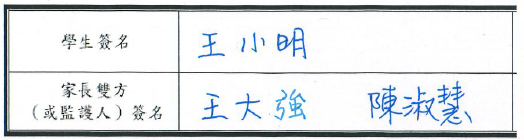 學生簽名 王小明
家長雙方
（或監護人）簽名 王大強 陳淑慧